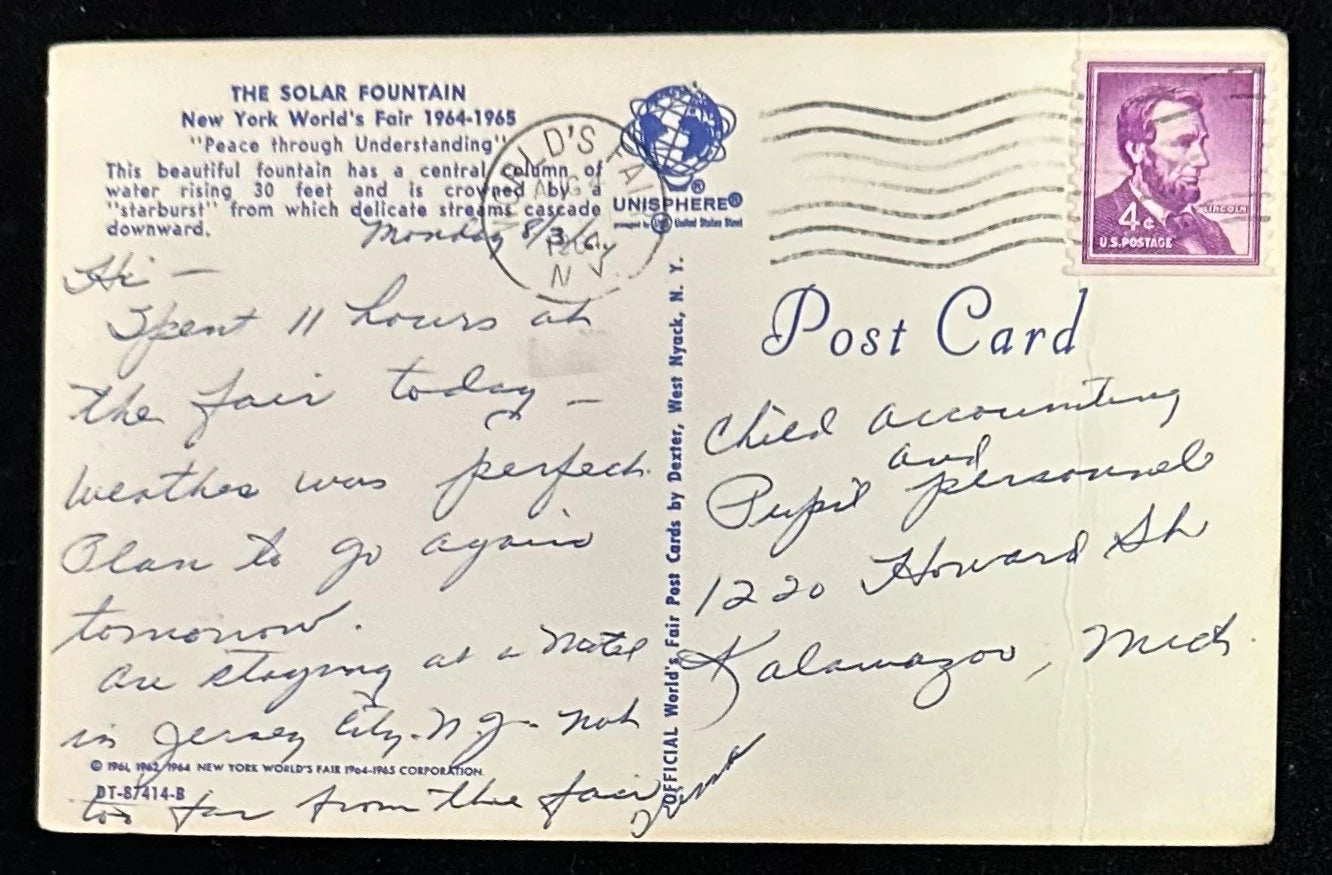 THE SOLAR FOUNTAIN
New York World's Fair 1964-1965
"Peace through Understanding"
This beautiful fountain has a central column of
water rising 30 feet and is crowned by a
"starburst" from which delicate streams cascade
downward.
Monday 8/3/64
Hi —
Spent 11 hours at
the fair today —
Weather was perfect.
Plan to go again
tomorrow.
are staying at a Motel
in Jersey City. N.J. Not
too far from the fair
© 1961, 1962, 1964 NEW YORK WORLD'S FAIR 1964-1965 CORPORATION
DT-87414-B
WORLD'S FAIR
AUG
N Y
UNISPHERE®
presented by USS United States Steel
OFFICIAL World's Fair Post Cards by Dexter, West Nyack, N. Y.
LINCOLN
4¢
U.S. POSTAGE
Post Card
Child Accounting
and
Pupil personnel
1220 Howard St
Kalamazoo, Mich.